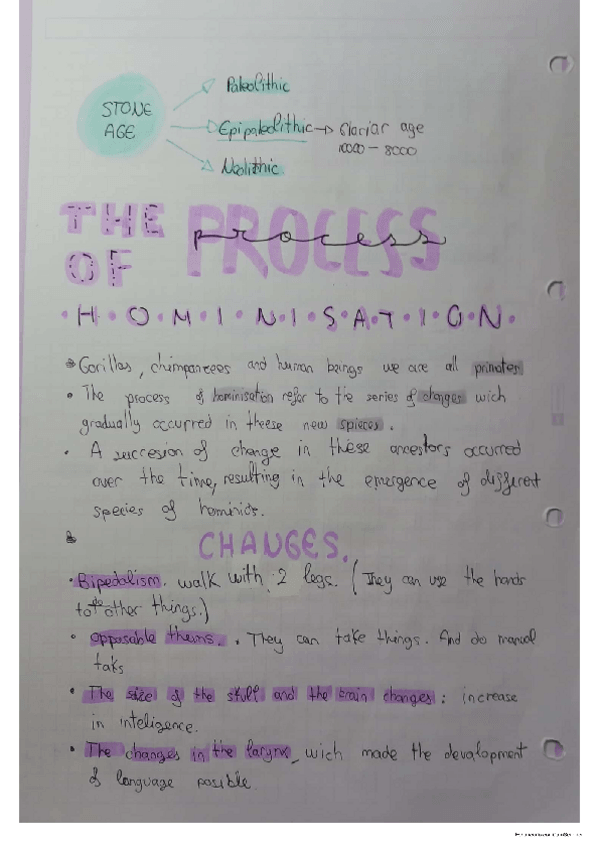 STONE AGE
Paleolithic
Epipaleolithic → Glaciar age
10000 - 8000
Neolithic
THE PROCESS process
OF
·H·O·M·I·N·I·S·A·T·I·O·N·
• Gorillas, chimpancees and human beings we are all primates
• The process of hominisation refer to the series of changes wich
gradually occurred in theese new spieces.
• A succresion of change in these ancestors occurred
over the time, resulting in the emergence of different
species of hominids.
CHANGES.
• Bipedalism. walk with 2 legs. (They can use the hands
to do other things.)
• opposable thums. . They can take things. And do manual
taks
• The size of the skull and the brain changes: increase
in inteligence.
• The changes in the larynx, wich made the devalopment
of language posible.